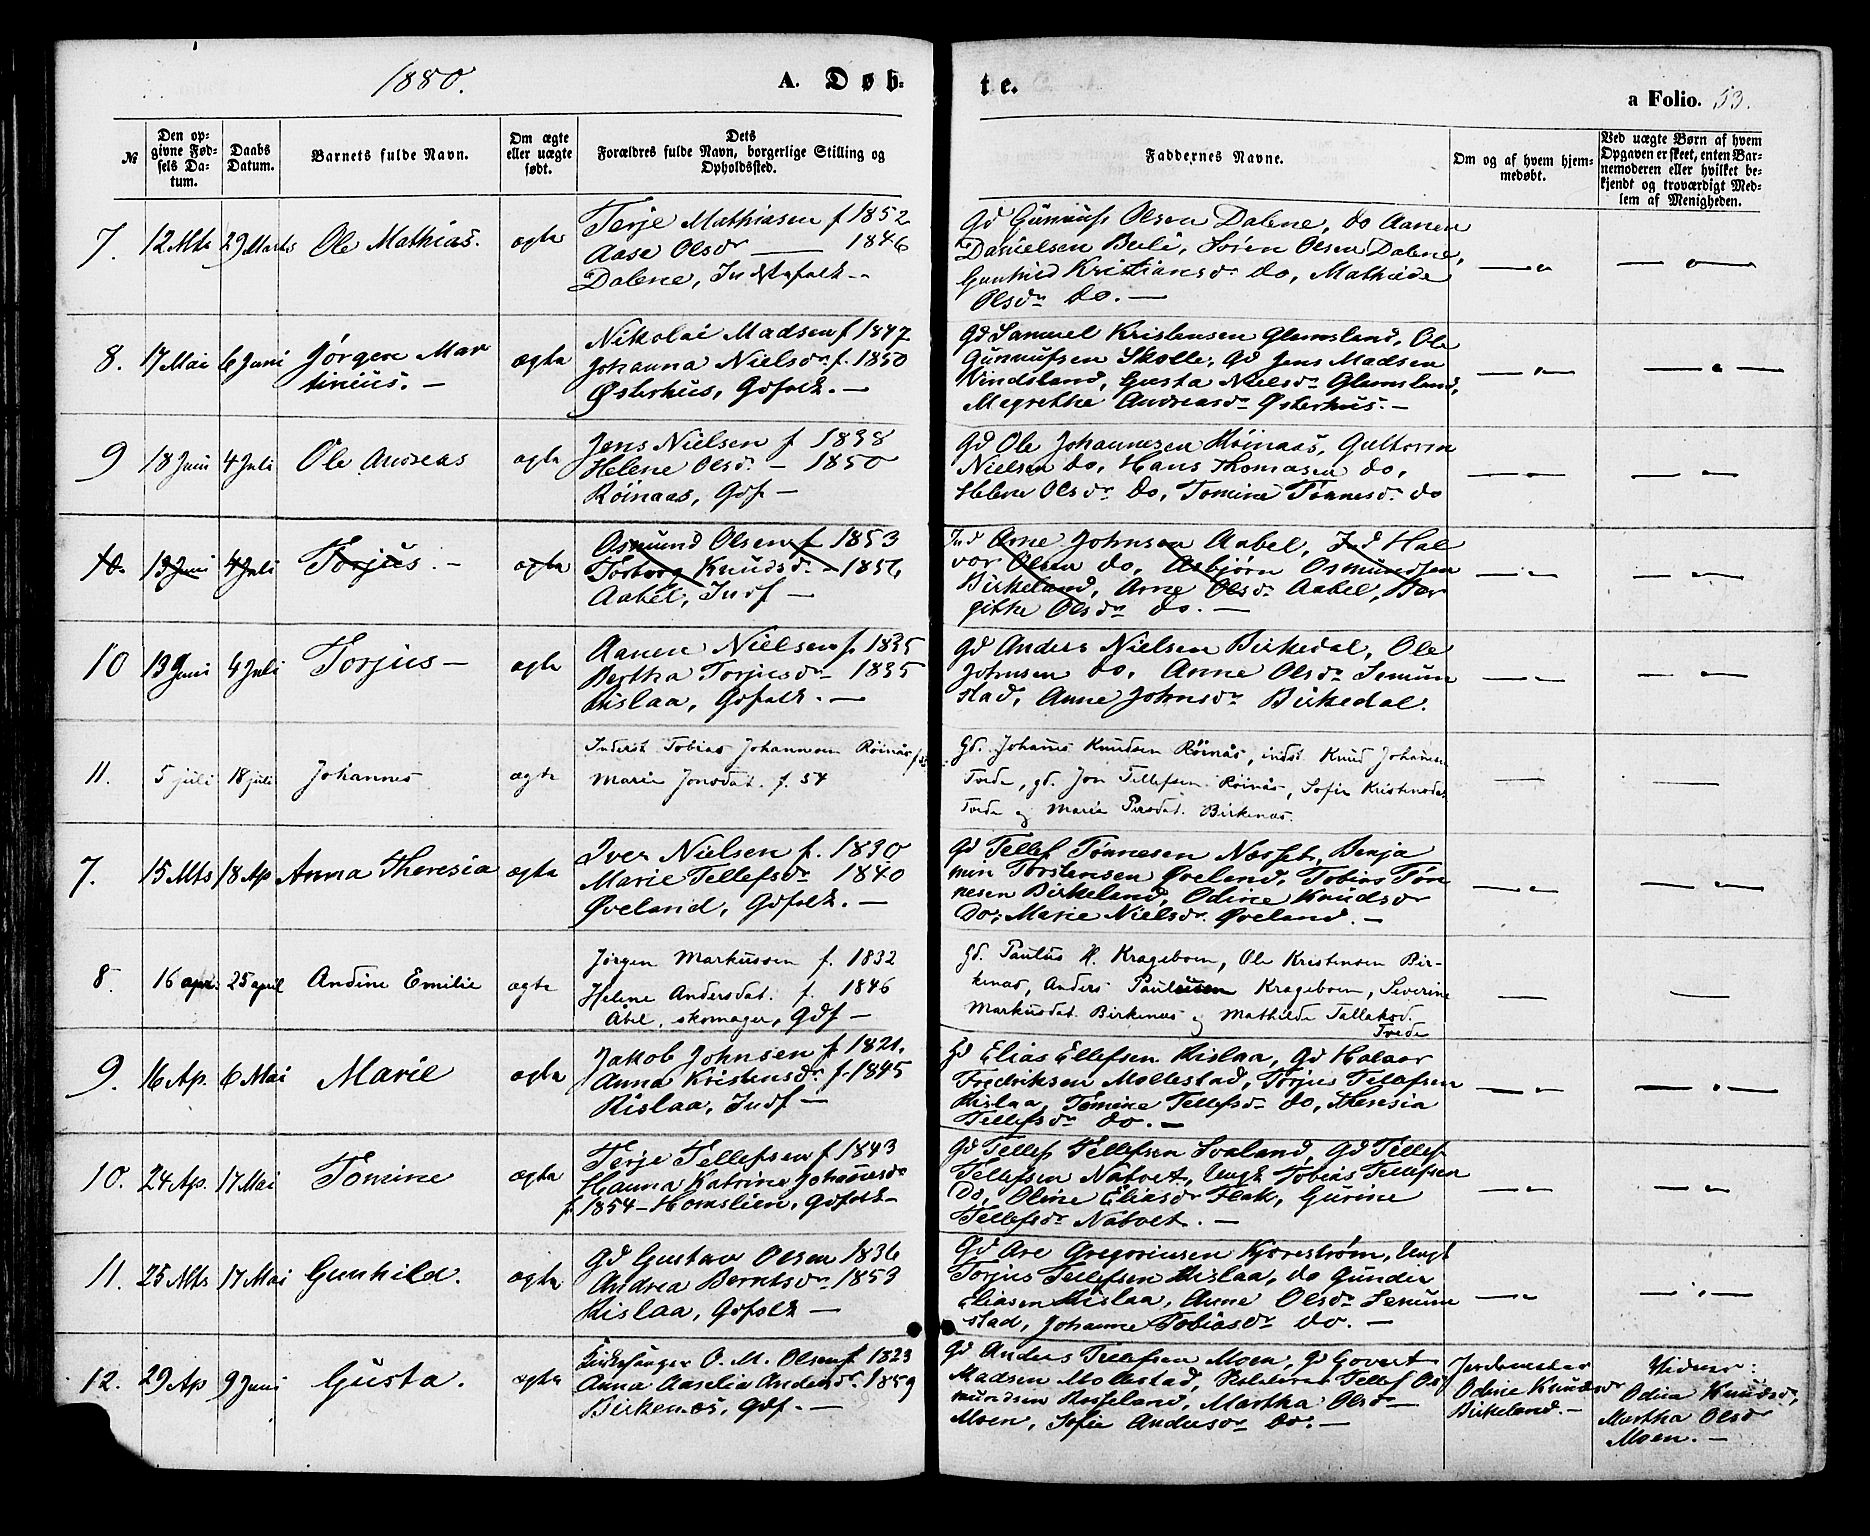 1880.
A. Døb-
te.
a Folio. 53.
№
Den op-
givne Fød-
sels Da-
tum.
Daabs
Datum.
Barnets fulde Navn.
Om ægte
eller uægte
født.
Dets
Forældres fulde Navn, borgerlige Stilling og
Opholdssted.
Faddernes Navne.
Om og af hvem hjem-
medøbt.
Ved uægte Børn af hvem
Opgaven er skeet, enten Bar-
nemoderen eller hvilket be-
kjendt og troværdigt Med-
lem af Menigheden.
7. 12 Mts 29 Marts Ole Mathias. ægte
Terje Mathiasen f 1852
Aase Olsdr — 1846
Dalene, Indstfolk —
Gd Gunnuf Olsen Dalene, do Aanen
Danielsen Beli, Søren Olsen Dalene,
Gunhild Kristiansdr do, Mathilde
Olsdr do. —
8. 17 Mai 6 Juni Jørgen Mar
tinius. — ægte
Nikolai Madsen f 1847
Johanna Nielsdr f. 1850
Østerhus, Gdfolk. —
Gd Samuel Kristensen Glamsland, Ole
Gunnufsen Skolle, Gd Jens Madsen
Vindsland, Gusta Nielsdr Glamsland,
Megrethe Andreasdr Østerhus. —
9 18 Juni 4 Juli Ole Andreas ægte
Jens Nielsen f 1838
Helene Olsd. — 1850
Røinaas, Gdf —
Gd Ole Johannesen Røinaas, Guttorm
Nielsen do, Hans Thomasen do,
Helene Olsdr do, Tomine Tønnesdr do
10. 13 Juni 4 Juli Torjus. — ægte
Osmund Olsen f 1853
Torborg Knudsdr — 1856
Aabel, Indf —
Ind Arne Johnsen Aabel, Ind Hal
vor Olsen do, Asbjørn Osmundsen
Birkeland, Arne Olsdr Aabel, Bor
githe Olsdr do. —
10 13 Juni 4 Juli Torjus — ægte
Aanen Nielsen f. 1835
Bertha Torjusdr 1835
Rislaa, Gdfolk. —
Gd Anders Nielsen Birkedal, Ole
Johnsen do, Anne Olsdr Senum
stad, Anne Johnsdr Birkedal.
11. 5 juli 18 juli Johannes ægte
Inderst Tobias Johannesen Röinås
Marie Jonsdat. f. 54
Gd. Johannes Knudsen Röinås, indst. Knud Johannesen
Tvede, gd. Jon Tellefsen Röinås, Sofie Kristensdat
Tvede og Marie Persdat. Birkenas.
7. 15 Mts 18 Ap Anna Theresia ægte
Iver Nielsen f. 1830
Marie Tellefsdr 1840
Øveland, Gdfolk. —
Gd Tellef Tønnesen Næset, Benja
min Torstensen Øveland, Tobias Tøn
nesen Birkeland, Odine Knudsdr
do, Marie Nielsdr Øveland. —
8. 16 april 25 april Andine Emilie ægte
Jørgen Markussen f. 1832
Helene Andersdat. f. 1846
Åbel, skomager, Gdf —
Gd. Paulus H. Krageboen, Ole Kristensen Bir-
kenas, Anders Paulussen Krageboen, Severine
Markusdat. Birkenas og Mathilde Tallaksd.
Tvede
9. 16 Ap. 6 Mai Marie ægte
Jakob Johnsen f 1821.
Anna Kristensdr f. 1845
Rislaa, Indf —
Gd Elias Ellefsen Rislaa, Gd Halvor
Fredriksen Mollestad, Torjus Tellefsen
Rislaa, Tomine Tellefsdr do, Theresia
Tellefsdr do. —
10. 24 Ap. 17 Mai Tomine ægte
Terje Tellefsen f 1843
Hanna Katrine Johannesdr
f 1854 — Homslien, Gdfolk —
Gd Tellef Tellefsen Svaland, Gd Tellef
Tellefsen Natvet, Ungk Tobias Tellefsen
do, Oline Eliasdr Flak, Gurine
Tellefsdr Natvet. —
11. 25 Mts 17 Mai Gunhild. ægte
Gd Gustav Olsen 1836
Andrea Berntsdr 1853
Rislaa, Gdfolk —
Gd Are Gregoriusen Kjørestrøm, Ungk
Torjus Tellefsen Rislaa, do Gunder
Eliasen Rislaa, Anne Olsdr Senum
stad, Johanne Tobiasdr do. —
12. 29 Ap 9 Juni Gusta. ægte
Kirkesanger O. M. Olsen f. 1823
Anna Aaselia Andersdr 1859
Birkenes, Gdf. —
Gd Anders Tellefsen Moen, Gd Govert
Madsen Mollestad, Tellef Os
mundsen Rosseland, Martha Olsdr
Moen, Sofie Andersdr do. —
Jordemoder
Odine Knudsdr
Birkeland. —
Vidner:
Odine Knudsdr,
Martha Olsdr
Moen. —